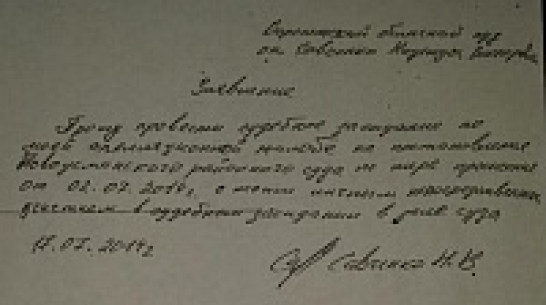 Воронежский областной суд
от Савченко Надежды Викторовны
Заявление
Прошу провести судебное заседание по
моей апелляционной жалобе на постановление
Новоусманского районного суда по мере пресечения
от 02.07.2014г. с моим личным непосредственным
участием в судебном заседании в зале суда
17.07.2014г
Савченко Н.В.